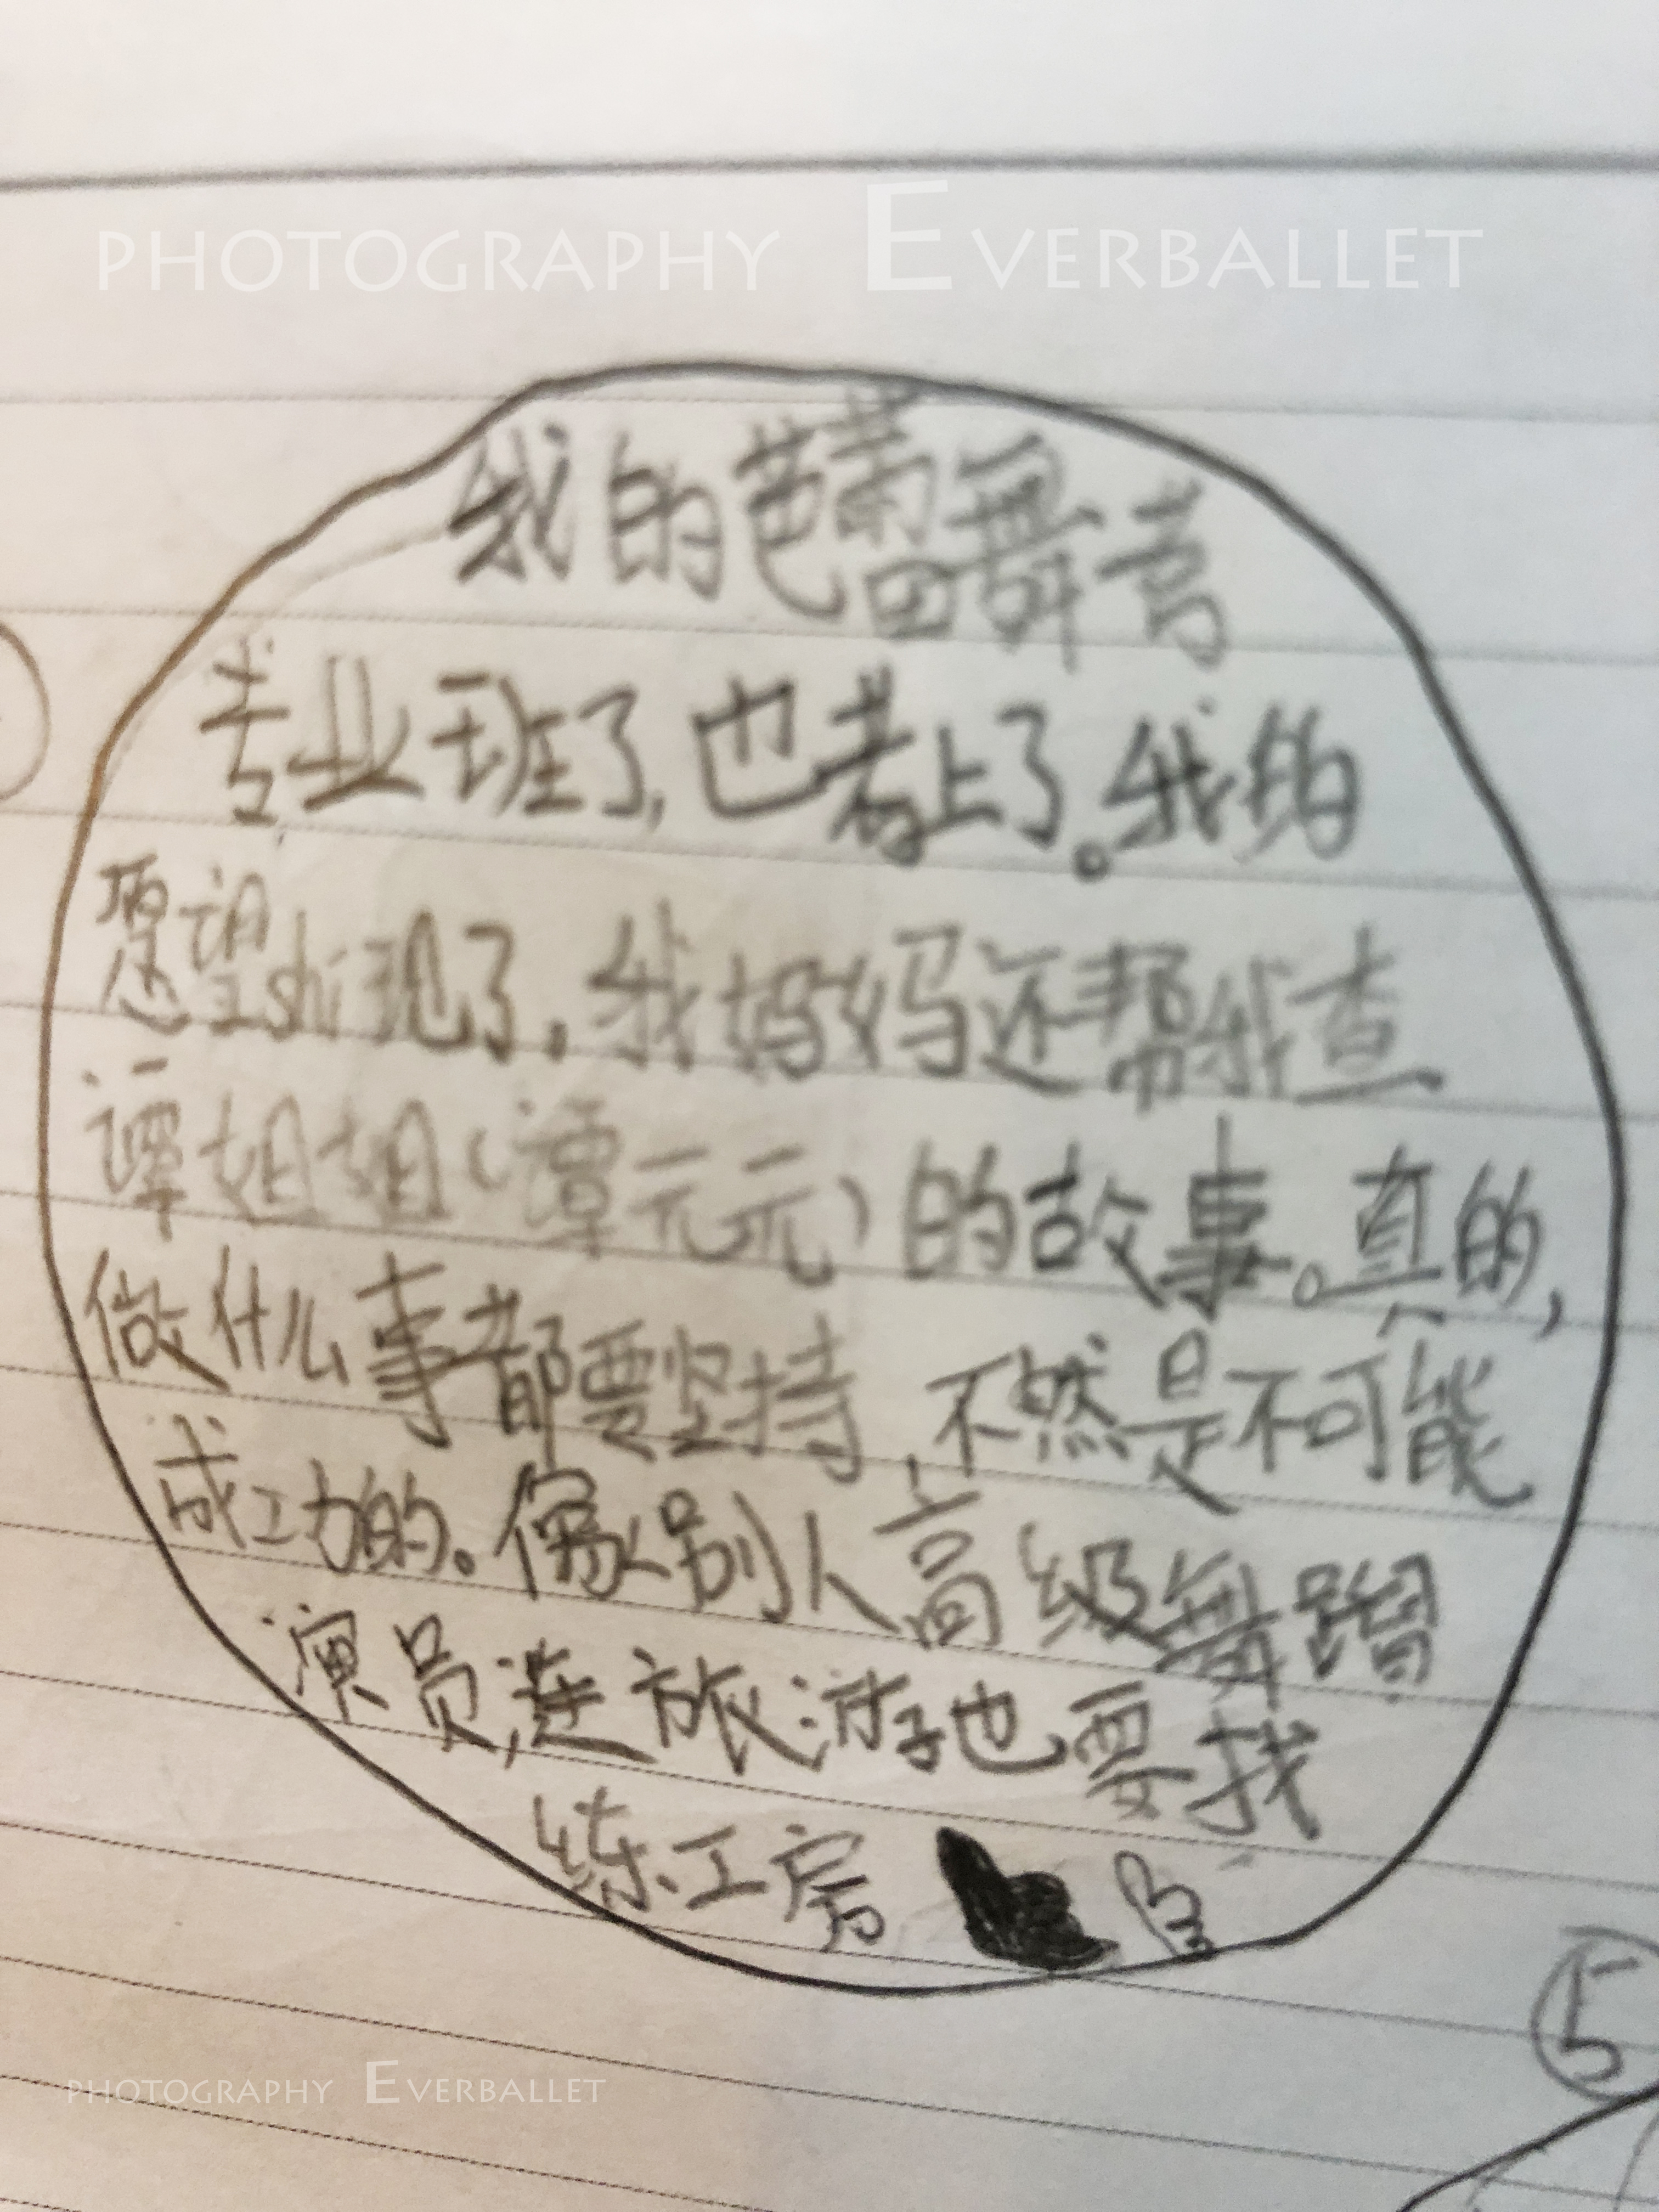 PHOTOGRAPHY EVERBALLET
我的芭蕾舞考
专业班了,也考上了。我的
愿望shi现了,我妈妈还帮我查
谭姐姐(谭元元)的故事。真的,
做什么事都要坚持,不然是不可能
成功的。像别人高级舞蹈
演员,连旅游也要找
练工房
5
PHOTOGRAPHY EVERBALLET